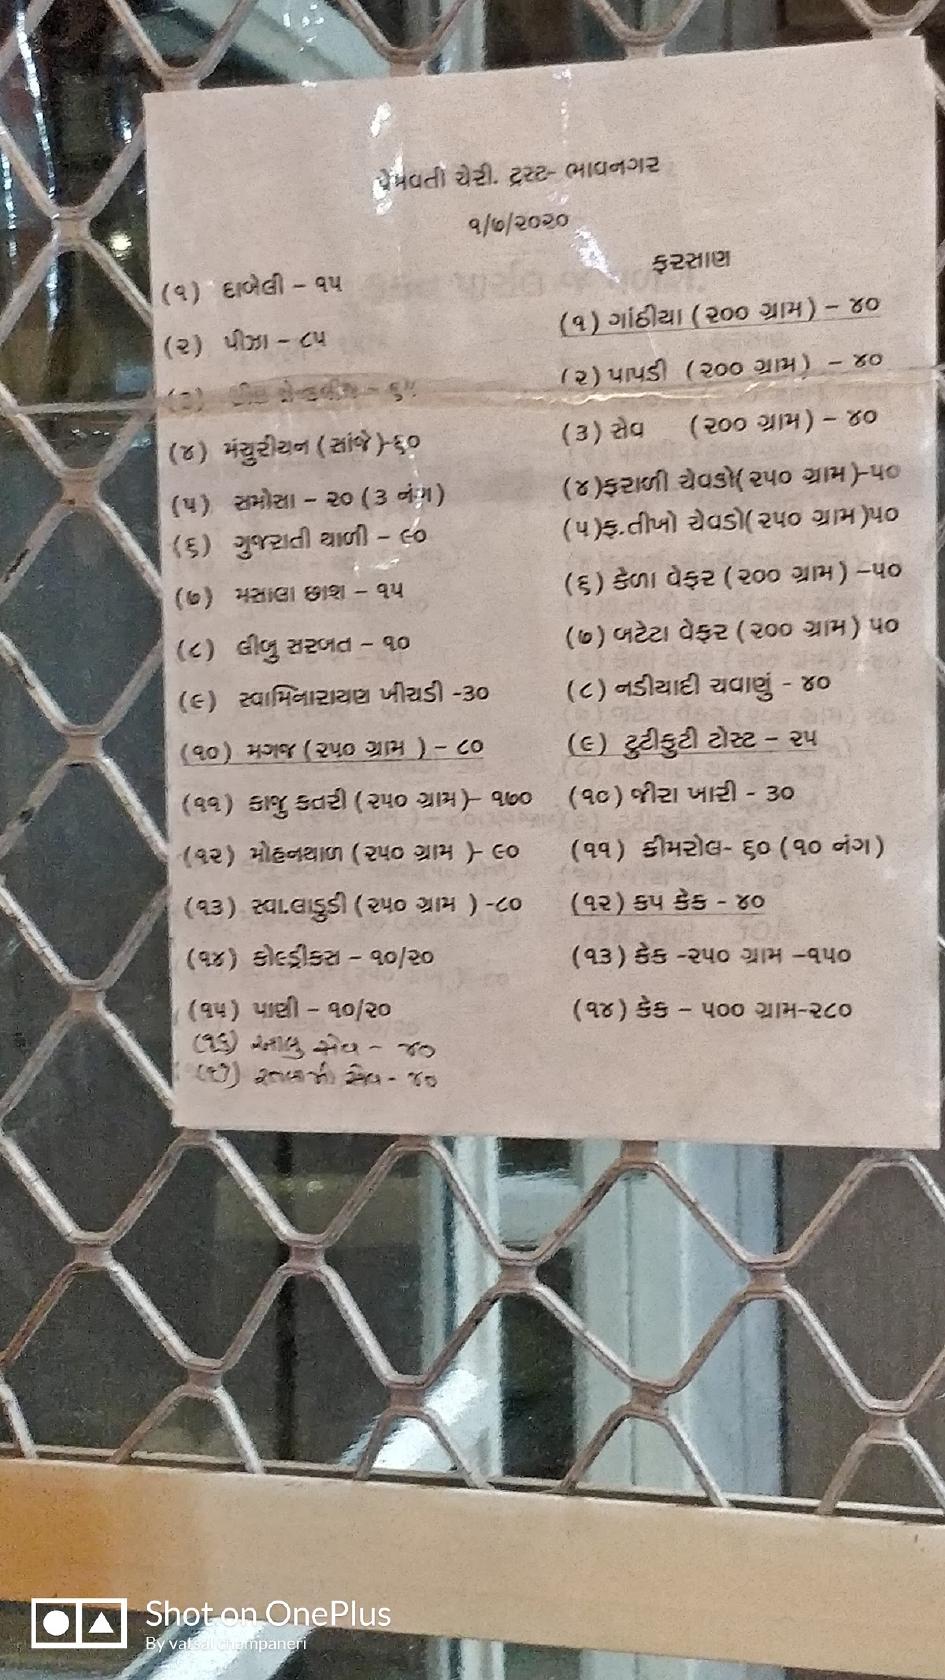 ચેરી. ટ્રસ્ટ- ભાવનગર
૧/૭/૨૦૨૦
(૧) દાબેલી – ૧૫
(૨) પીઝા – ૮૫
(૪) મંચુરીયન (સાંજે)-૬૦
(૫) સમોસા – ૨૦ (૩ નંગ)
(૬) ગુજરાતી થાળી – ૯૦
(૭) મસાલા છાશ – ૧૫
(૮) લીબુ સરબત – ૧૦
(૯) સ્વામિનારાયણ ખીચડી -૩૦
(૧૦) મગજ (૨૫૦ ગ્રામ ) – ૮૦
(૧૧) કાજુ કતરી (૨૫૦ ગ્રામ)- ૧૭૦
(૧૨) મોહનથાળ (૨૫૦ ગ્રામ )- ૯૦
(૧૩) સ્વા.લાડુડી (૨૫૦ ગ્રામ ) -૮૦
(૧૪) કોલ્ડ્રીકસ – ૧૦/૨૦
(૧૫) પાણી – ૧૦/૨૦
(૧૬) આલુ સેવ – ૪૦
(૧૭) રતલામી સેવ - ૪૦
ફરસાણ
(૧) ગાંઠીયા (૨૦૦ ગ્રામ) – ૪૦
(૨) પાપડી (૨૦૦ ગ્રામ) – ૪૦
(૩) સેવ (૨૦૦ ગ્રામ) – ૪૦
(૪)ફરાળી ચેવડો(૨૫૦ ગ્રામ)-૫૦
(૫)ફ.તીખો ચેવડો(૨૫૦ ગ્રામ)૫૦
(૬) કેળા વેફર (૨૦૦ ગ્રામ) –૫૦
(૭) બટેટા વેફર (૨૦૦ ગ્રામ) ૫૦
(૮) નડીયાદી ચવાણું - ૪૦
(૯) ટુટીફુટી ટોસ્ટ – ૨૫
(૧૦) જીરા ખારી - ૩૦
(૧૧) કીમરોલ- ૬૦ (૧૦ નંગ)
(૧૨) કપ કેક - ૪૦
(૧૩) કેક -૨૫૦ ગ્રામ –૧૫૦
(૧૪) કેક – ૫૦૦ ગ્રામ-૨૮૦
Shot on OnePlus
By vatsal champaneri